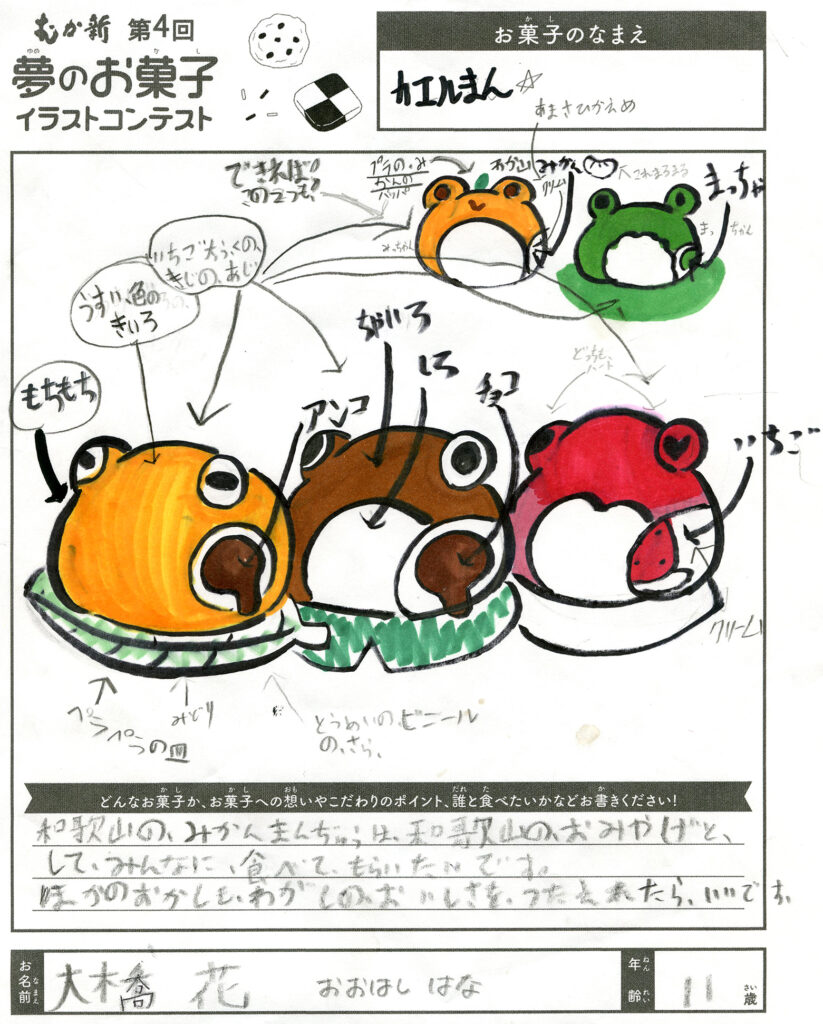 むか新 第4回
夢のお菓子
ゆめ かし
イラストコンテスト
お菓子のなまえ
かし
カエルまん☆
あまさひかえめ
できれば
この二つも
プラの、み
かんの
ハッパ
わか山みかん
クリーム
まっちゃ
いちご大ふくの、
きじの、あじ
うすい、色の
きいろ
もちもち
アンコ
ちゃいろ
しろ
チョコ
どっちも、
ハート
いちご
クリーム
ペラ
ペラの皿
みどり
とうめいの、ビニール
の、さら、
どんなお菓子か、お菓子への想いやこだわりのポイント、誰と食べたいかなどお書きください!
かし かし おも だれ た か
和歌山の、みかんまんぢゅうは、和歌山の、おみやげと、
して、みんなに、食べて、もらいたいです。
ほかのおかしも、わがしの、おいしさを、つたえれたら、いいです。
お名前
なまえ
大木喬 花
おおはし はな
年齢
ねんれい
11
歳
さい